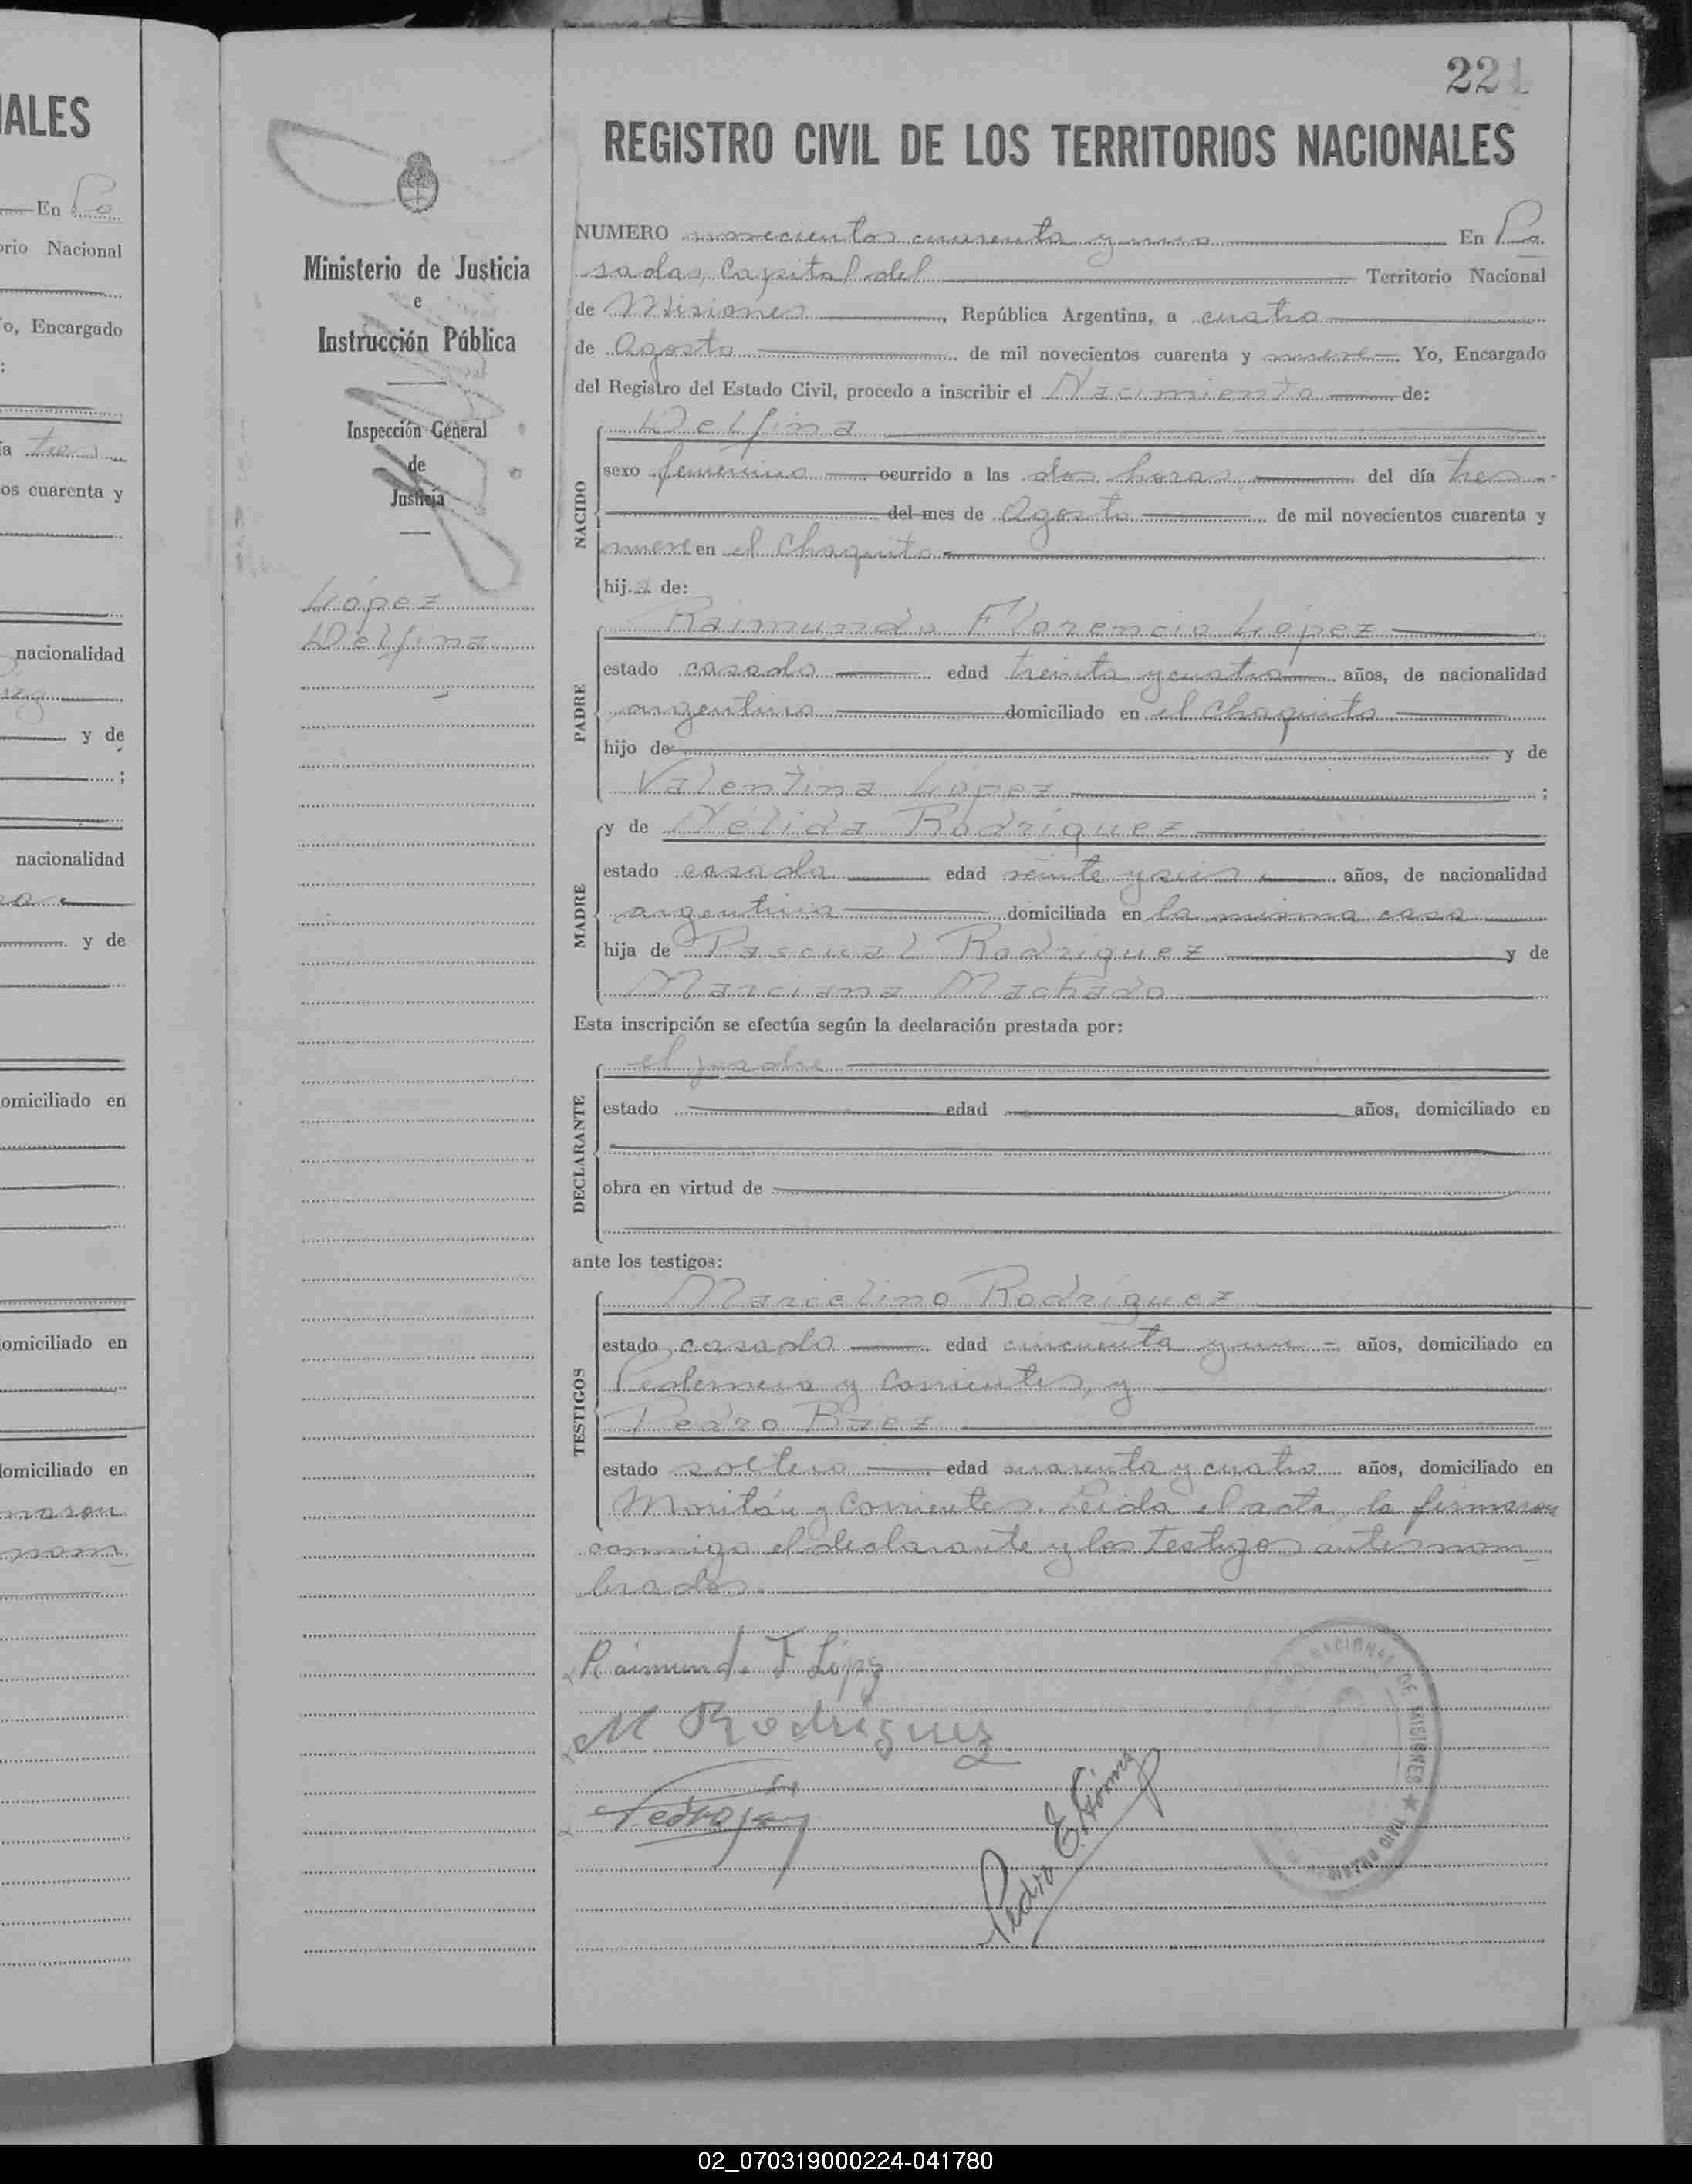 IALES
En Po
orio Nacional
o, Encargado
:
a tres
os cuarenta y
nacionalidad
y de
;
nacionalidad
y de
omiciliado en
omiciliado en
domiciliado en
maron
nom
Ministerio de Justicia
e
Instrucción Pública
Inspección General
de
Justicia
López
Delfina
221
REGISTRO CIVIL DE LOS TERRITORIOS NACIONALES
NUMERO novecientos cuarenta y uno En Po
sadas, Capital del Territorio Nacional
de Misiones, República Argentina, a cuatro
de Agosto de mil novecientos cuarenta y nueve Yo, Encargado
del Registro del Estado Civil, procedo a inscribir el Nacimiento de:
Delfina
NACIDO
sexo femenino ocurrido a las dos horas del día tres
del mes de Agosto de mil novecientos cuarenta y
nueve en el Chaquito
hija de:
Raimundo Florencio López
PADRE
estado casado edad treinta y cuatro años, de nacionalidad
argentino domiciliado en el Chaquito
hijo de y de
Valentina López ;
y de Nélida Rodríguez
MADRE
estado casada edad veinte y seis años, de nacionalidad
argentina domiciliada en la misma casa
hija de Pascual Rodríguez y de
Marciana Machado
Esta inscripción se efectúa según la declaración prestada por:
el padre
DECLARANTE
estado edad años, domiciliado en
obra en virtud de
ante los testigos:
Marcelino Rodríguez
TESTIGOS
estado casado edad cincuenta y un años, domiciliado en
Pedernera y Corrientes, y
Pedro Báez
estado soltero edad cuarenta y cuatro años, domiciliado en
y Corrientes. Leída el acta, la firmaron
conmigo el declarante y los testigos antes nom
brados.
Raimundo F López
M Rodríguez
Pedro
Pedro E. Gómez
NACIONAL DE MISIONES ★
02_070319000224-041780